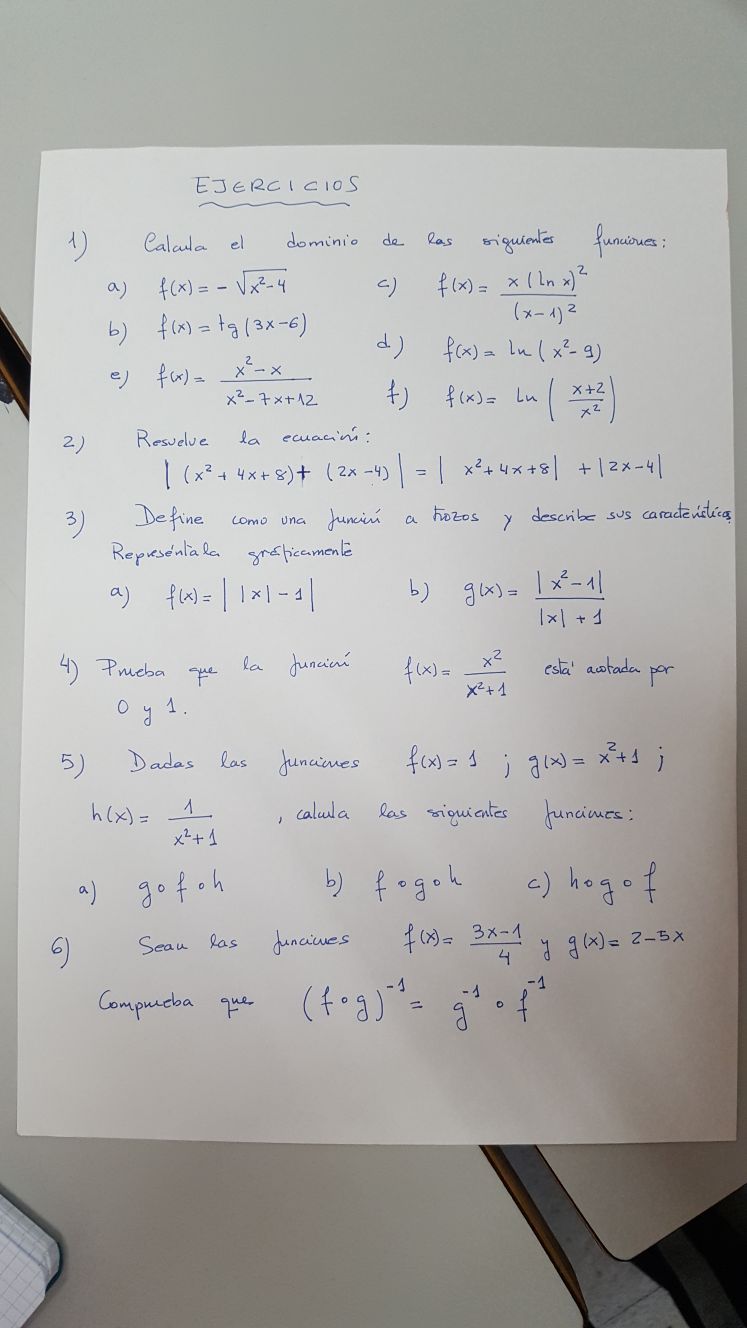 EJERCICIOS
1) Calcula el dominio de las siguientes funciones:
a) f(x) = - √(x²-4) c) f(x) = x (ln x)² / (x-1)²
b) f(x) = tg (3x-6) d) f(x) = ln (x²-9)
e) f(x) = (x²-x) / (x²-7x+12) f) f(x) = ln ((x+2)/x²)
2) Resuelve la ecuación:
| (x²+4x+8) + (2x-4) | = | x²+4x+8 | + |2x-4|
3) Define como una función a trozos y describe sus características
Represéntala gráficamente
a) f(x) = | |x| - 1 | b) g(x) = |x²-1| / (|x|+1)
4) Prueba que la función f(x) = x² / (x²+1) está acotada por
0 y 1.
5) Dadas las funciones f(x) = 1 ; g(x) = x²+1 ;
h(x) = 1 / (x²+1) , calcula las siguientes funciones:
a) g∘f∘h b) f∘g∘h c) h∘g∘f
6) Sean las funciones f(x) = (3x-1)/4 y g(x) = 2-5x
Comprueba que (f∘g)⁻¹ = g⁻¹ ∘ f⁻¹